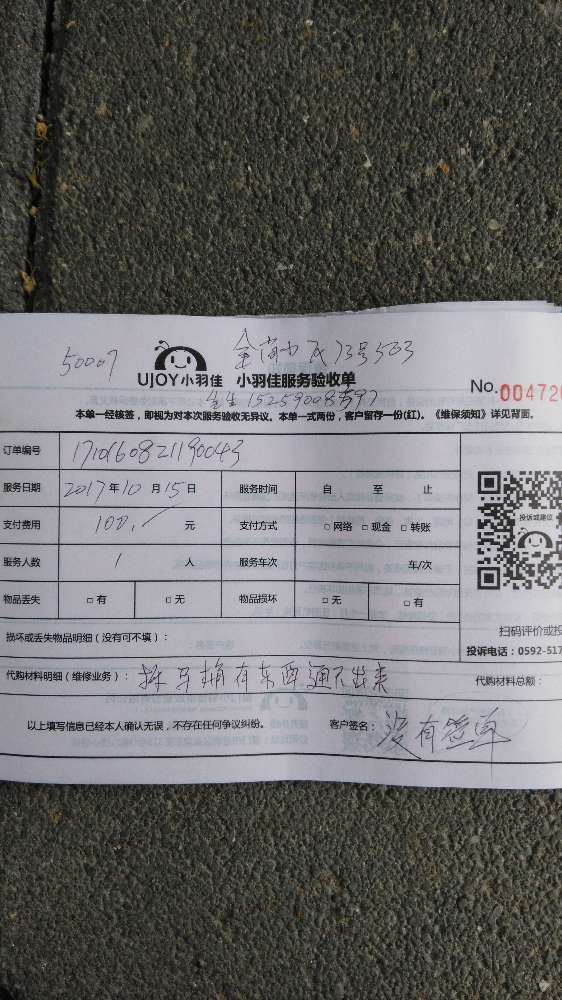 50007
金尚小区73号503
UJOY小羽佳 小羽佳服务验收单
No.004720
本单一经核签，即视为对本次服务验收无异议。本单一式两份，客户留存一份(红)。《维保须知》详见背面。
订单编号
服务日期 2017年10月15日 服务时间 自 至 止
支付费用 100. 元 支付方式 □ 网络 □ 现金 □ 转账
投诉或建议
服务人数 1 人 服务车次 车/次
物品丢失 □ 有 □ 无 物品损坏 □ 无 □ 有
扫码评价或投
损坏或丢失物品明细（没有可不填）：
投诉电话：0592-517
代购材料明细（维修业务）： 拆马桶有东西通不出来 代购材料总额：
以上填写信息已经本人确认无误，不存在任何争议纠纷。 客户签名： 没有签单